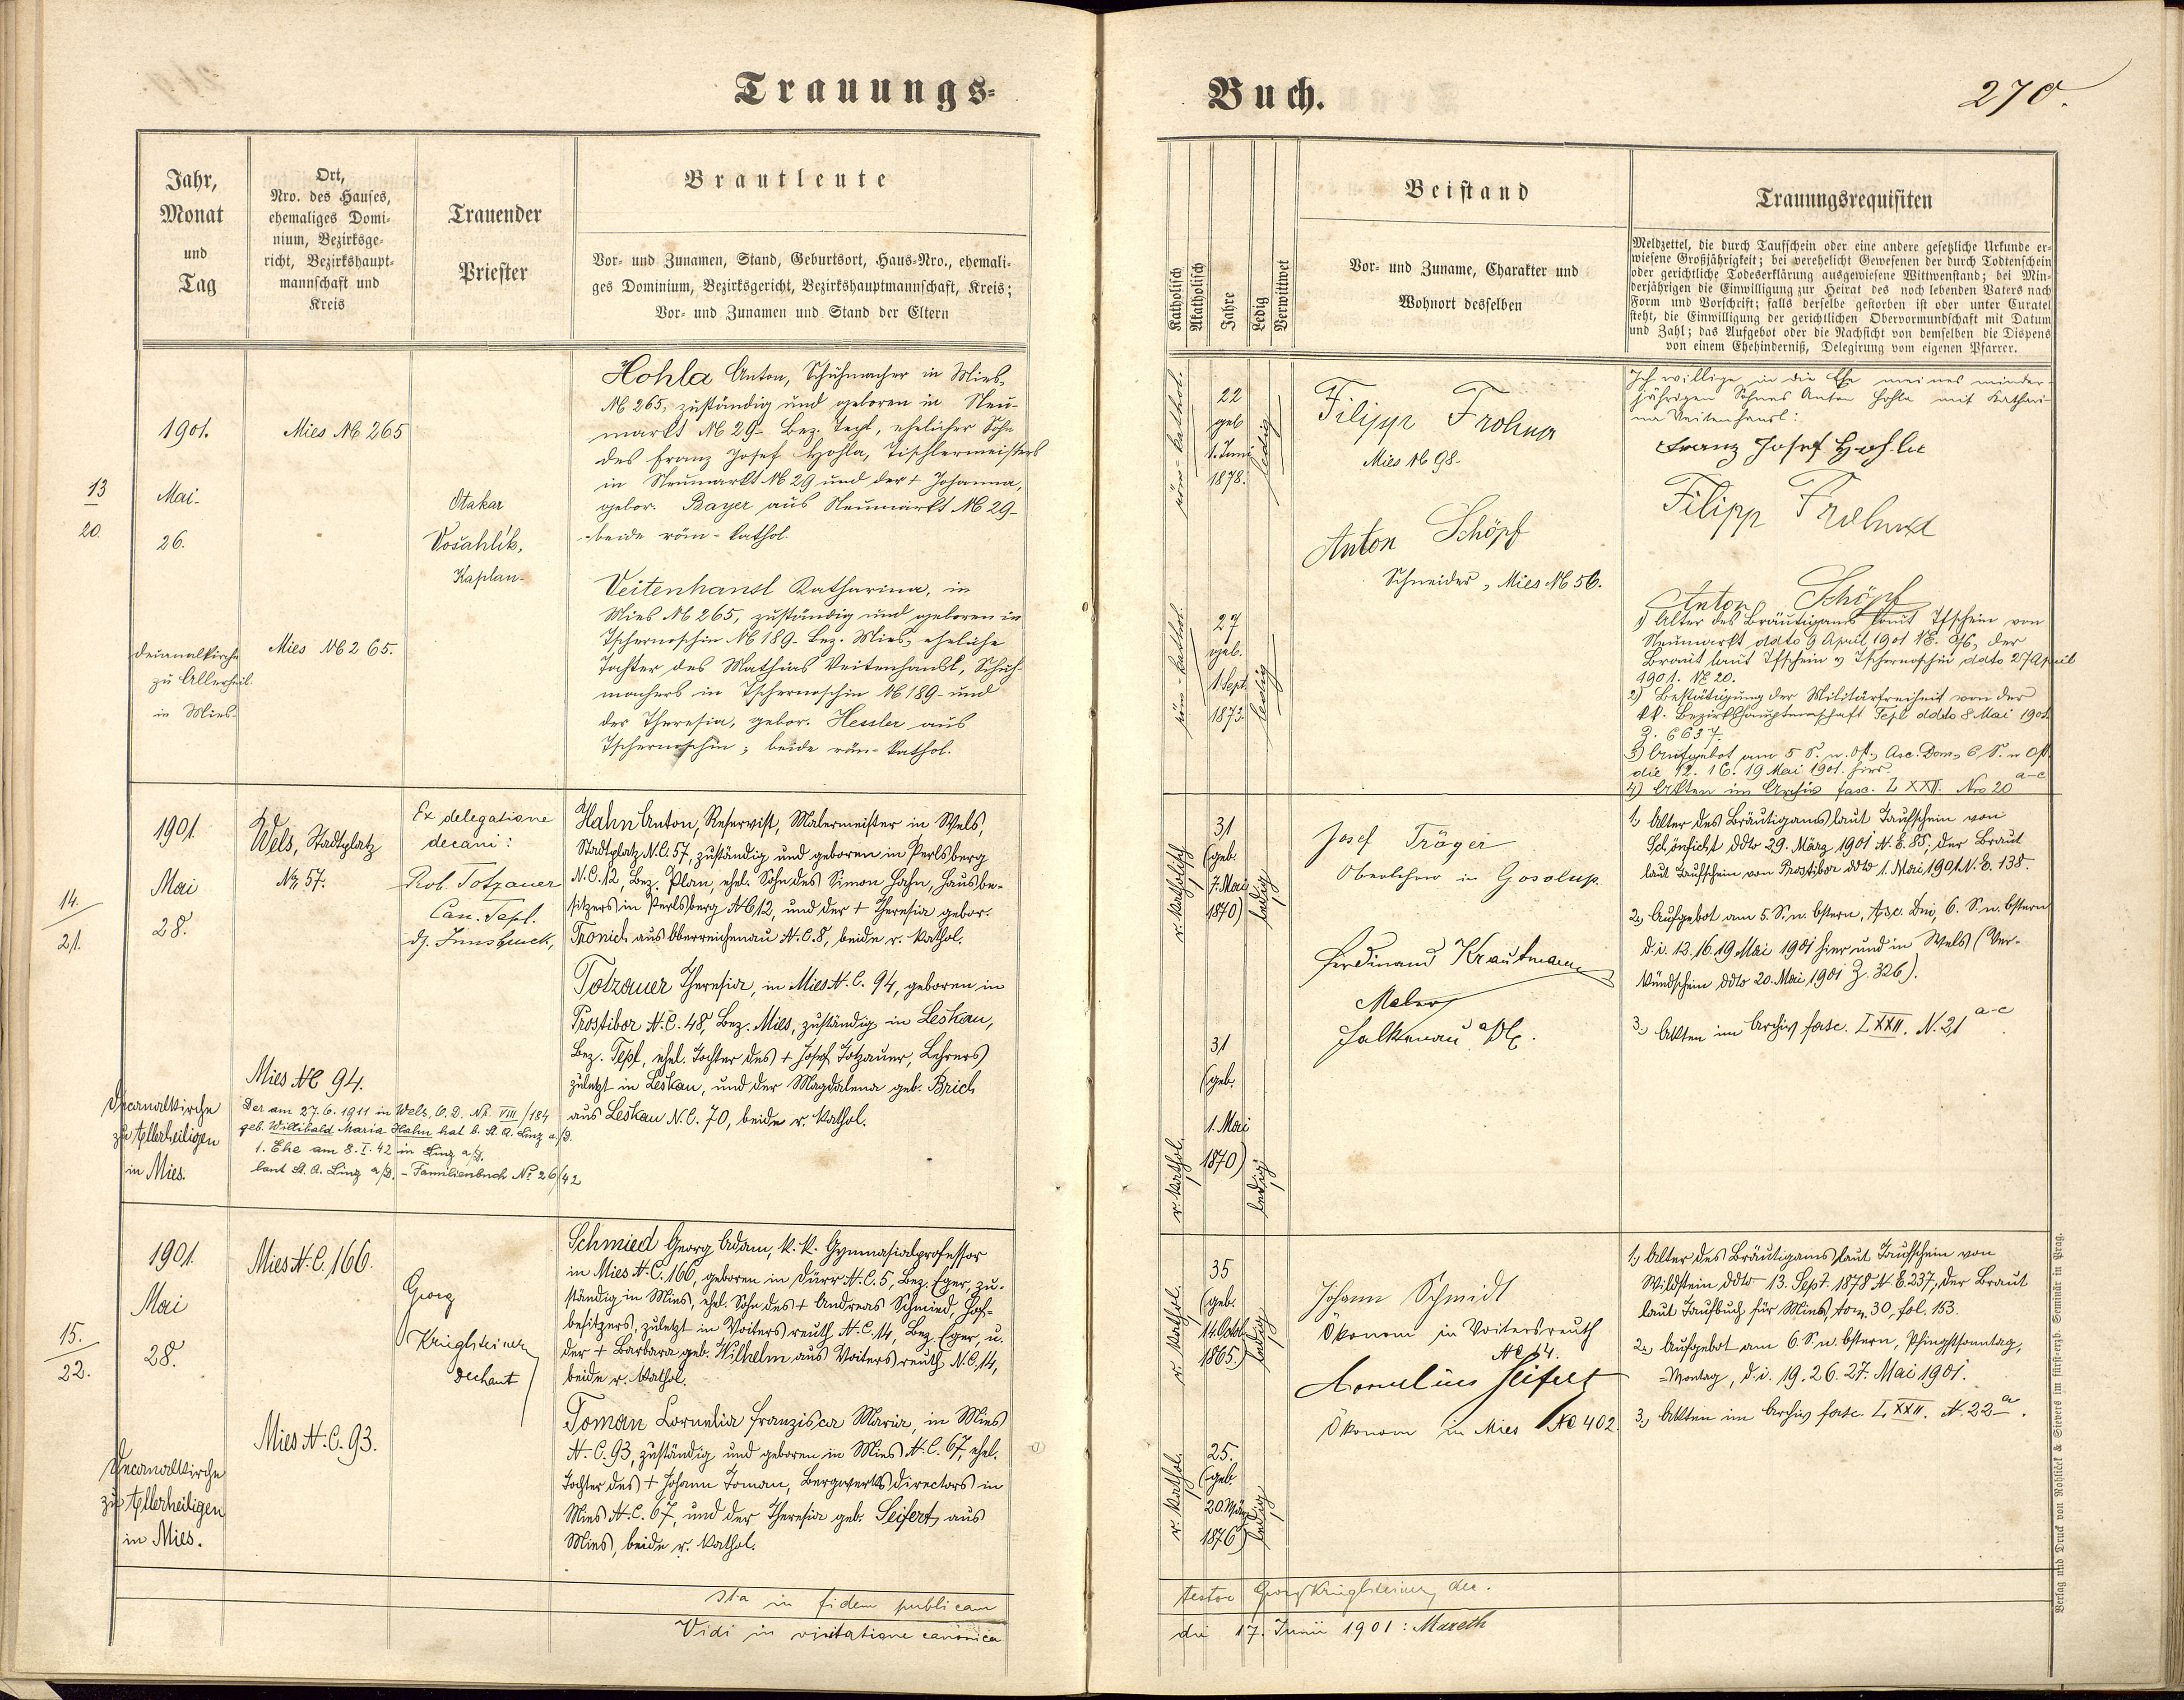 Trauungs-
Buch.
270.
Jahr,
Monat
und
Tag
Ort,
Nro. des Hauses,
ehemaliges Domi-
nium, Bezirksge-
richt, Bezirkshaupt-
mannschaft und
Kreis
Trauender
Priester
Brautleute
Vor- und Zunamen, Stand, Geburtsort, Haus-Nro., ehemali-
ges Dominium, Bezirksgericht, Bezirkshauptmannschaft, Kreis;
Vor- und Zunamen und Stand der Eltern
Katholisch
Akatholisch
Jahre
Ledig
Verwittwet
Beistand
Vor- und Zuname, Charakter und
Wohnort desselben
Trauungsrequisiten
Meldzettel, die durch Taufschein oder eine andere gesetzliche Urkunde er-
wiesene Großjährigkeit; bei verehelicht Gewesenen der durch Todtenschein
oder gerichtliche Todeserklärung ausgewiesene Wittwenstand; bei Min-
derjährigen die Einwilligung zur Heirat des noch lebenden Vaters nach
Form und Vorschrift; falls derselbe gestorben ist oder unter Curatel
steht, die Einwilligung der gerichtlichen Obervormundschaft mit Datum
und Zahl; das Aufgebot oder die Nachsicht von demselben die Dispens
von einem Ehehinderniß, Delegirung vom eigenen Pfarrer.
13
20.
1901.
Mai.
26.
Decanalkirche
zu Allerheil.
in Mies.
Mies № 265
Mies № 265.
Otakar
Vošahlík,
Kaplan.
Hohla Anton, Schuhmacher in Mies,
№ 265, zuständig und geboren in Neu-
markt № 29- Bez. Tepl, ehelicher Sohn
des Franz Josef Hohla, Tischlermeisters
in Neumarkt № 29 und der + Johanna,
gebor. Bayer aus Neumarkt № 29-
-beide röm-kathol.
Veitenhansl Katharina, in
Mies № 265, zuständig und geboren in
Tschernoschin № 189- Bez. Mies, eheliche
Tochter des Mathias Veitenhansl, Schuh-
machers in Tschernoschin № 189- und
der Theresia, gebor. Hessler aus
Tschernoschin; beide röm-kathol.
röm-kathol.
22
geb
1. Juni
1878.
ledig
röm-kathol.
27
geb.
1. Sept.
1873.
ledig
Filipp Frohna
Mies № 98-
Anton Schöpf
Schneider, Mies № 56.
Ich willige in die Ehe meines minder-
jährigen Sohnes Anton Hohla mit Kathari-
na Veitenhansl:
Franz Josef Hohla
Filipp
Anton Schöpf
1) Alter des Bräutigams laut Tfschein von
Neumarkt ddto 9 April 1901 NE. 96, der
Braut laut Tfschein v Tschernoschin ddto 27 April
1901. NE 20.
2) Bestätigung der Militärfreiheit von der
kk. Bezirkshauptmschaft Tepl ddto 8 Mai 1901.
Z. 6637.
3) Aufgebot am 5 S. n. Ost., Asc. Dom, 6 S. n Ost.
die 12. 16. 19 Mai 1901. hier.
4) Akten im Archiv fasc. L XXII. Nro 20 a-c
14.
21.
1901.
Mai
28.
Decanalkirche
zu Allerheiligen
in Mies.
Wels, Stadtplatz
Nr. 57.
Mies NC 94.
Der am 27.6.1911 in Wels, O.D. Nr. VIII/184
geb. Willibald Maria Hahn hat b. St. A. Linz a/D.
1. Ehe am 8.I.42 in Linz a/D.
laut St. A. Linz a/D. - Familienbuch No 26/42
Ex delegatione
decani:
Rob. Totzauer
Can. Tepl.
dz. Innsbruck,
Hahn Anton, Reservist, Malermeister in Wels,
Stadtplatz N.C. 57, zuständig und geboren in Perlsberg
N.C. 12, Bez. Plan, ehel. Sohn des Simon Hahn, Hausbe-
sitzers in Perlsberg NC 12, und der + Theresia gebor.
Tronich aus Oberreichenau N.C. 8, beide r. kathol.
Totzauer Theresia, in Mies N.C. 94, geboren in
Prostibor N.C. 48, Bez. Mies, zuständig in Leskau,
Bez. Tepl, ehel. Tochter des + Josef Totzauer, Lehrers
zuletzt in Leskau, und der Magdalena geb. Brich
aus Leskau N.C. 70, beide r. kathol.
r. katholisch
31
(geb.
7. Mai
1870)
ledig
r. kathol.
31
(geb.
1. Mai
1870)
ledig
Josef Träger
Oberlehrer in Gosolup.
Ferdinand Krautmann
Maler
Falkenau a/E.
1.) Alter des Bräutigams laut Taufschein von
Schönficht ddto 29. März 1901 N.E. 85, der Braut
laut Taufschein von Prostibor ddto 1. Mai 1901 N.E. 138.
2.) Aufgebot am 5. S. n. Ostern, Asc. Dni, 6. S. n. Ostern
d. i. 12. 16. 19 Mai 1901 hier und in Wels (Ver-
kündschein ddto 20. Mai 1901 Z. 326).
3.) Akten im Archiv fasc. L XXII. N. 21 a-c
15.
22.
1901.
Mai
28.
Decanalkirche
zu Allerheiligen
in Mies.
Mies N.C. 166.
Mies N.C. 93.
Georg
Krieglsteiner
Dechant
Schmied Georg Adam, k. k. Gymnasialprofessor
in Mies N.C. 166, geboren in Dürr N.C. 5, Bez. Eger, zu-
ständig in Mies, ehel. Sohn des + Andreas Schmied, Hof-
besitzers, zuletzt in Voitersreuth N.C. 14, Bez. Eger, u.
der + Barbara geb. Wilhelm aus Voitersreuth N.C. 14,
beide r. kathol.
Toman Cornelia Franzisca Maria, in Mies
N.C. 93, zuständig und geboren in Mies N.C. 67, ehel.
Tochter des + Johann Toman, Bergwerksdirectors in
Mies N.C. 67, und der Theresia geb. Seifert aus
Mies, beide r. kathol.
r. kathol.
35
(geb.
14. Octob.
1865.)
ledig
r. kathol.
25.
(geb.
20. März
1876)
ledig
Johann Schmidt
Ökonom in Voitersreuth
NC 14.
Kornelius Seifert
Ökonom in Mies NC 402.
1.) Alter des Bräutigams laut Taufschein von
Wildstein ddto 13. Sept. 1878 N.E. 237, der Braut
laut Taufbuch für Mies, tom. 30, fol. 153.
2.) Aufgebot am 6. S. n. Ostern, Pfingstsonntag,
-Montag, d. i. 19. 26. 27. Mai 1901.
3.) Akten im Archiv fasc. L XXII. N. 22 a.
Ita in fidem publicam
testor Georg Krieglsteiner, dec.
Vidi in visitatione canonica
die 17. Junii 1901: Mareth
Verlag und Druck von Rohliček & Sievers im fürst-erzb. Seminär in Prag.